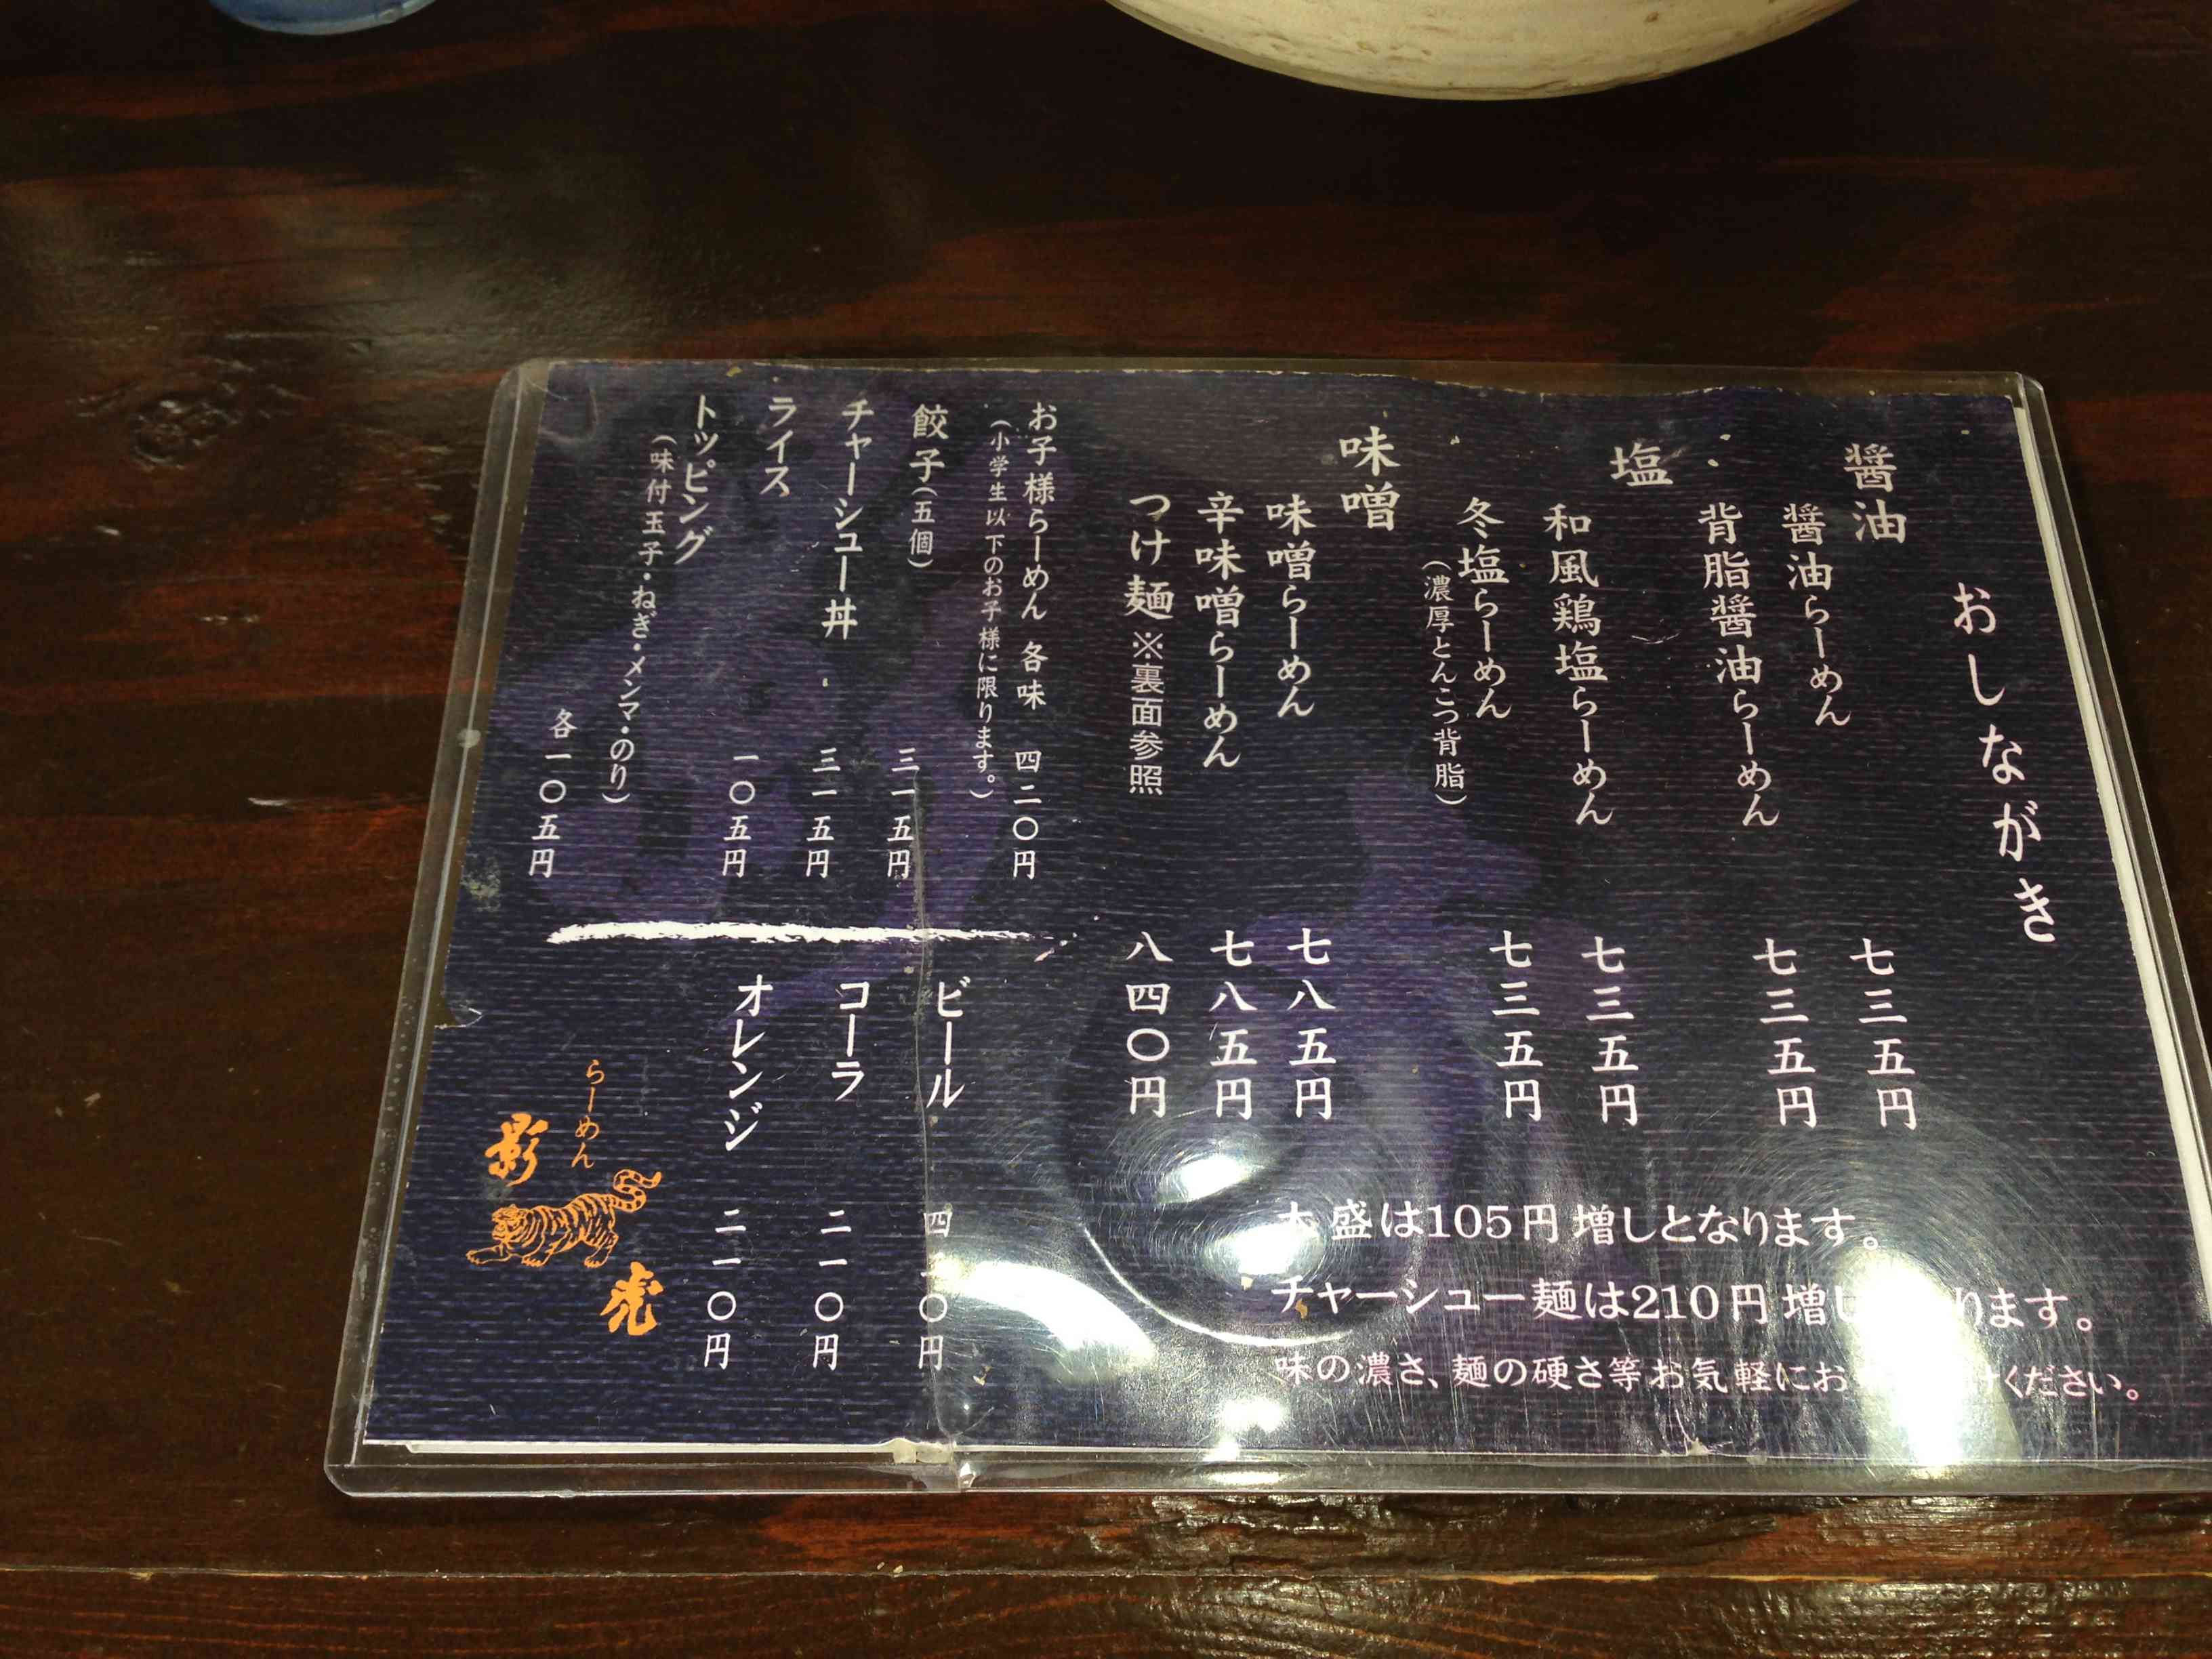 おしながき
醤油
醤油らーめん 七三五円
背脂醤油らーめん 七三五円
塩
和風鶏塩らーめん 七三五円
冬塩らーめん 七三五円
（濃厚とんこつ背脂）
味噌
味噌らーめん 七八五円
辛味噌らーめん 七八五円
つけ麺 ※裏面参照 八四〇円
大盛は105円増しとなります。
チャーシュー麺は210円増し ります。
味の濃さ、麺の硬さ等お気軽にお ください。
お子様らーめん 各味 四二〇円
（小学生以下のお子様に限ります。）
餃子（五個） 三一五円
チャーシュー丼 三一五円
ライス 一〇五円
トッピング
（味付玉子・ねぎ・メンマ・のり）
各一〇五円
ビール 四一〇円
コーラ 二一〇円
オレンジ 二一〇円
らーめん
影虎